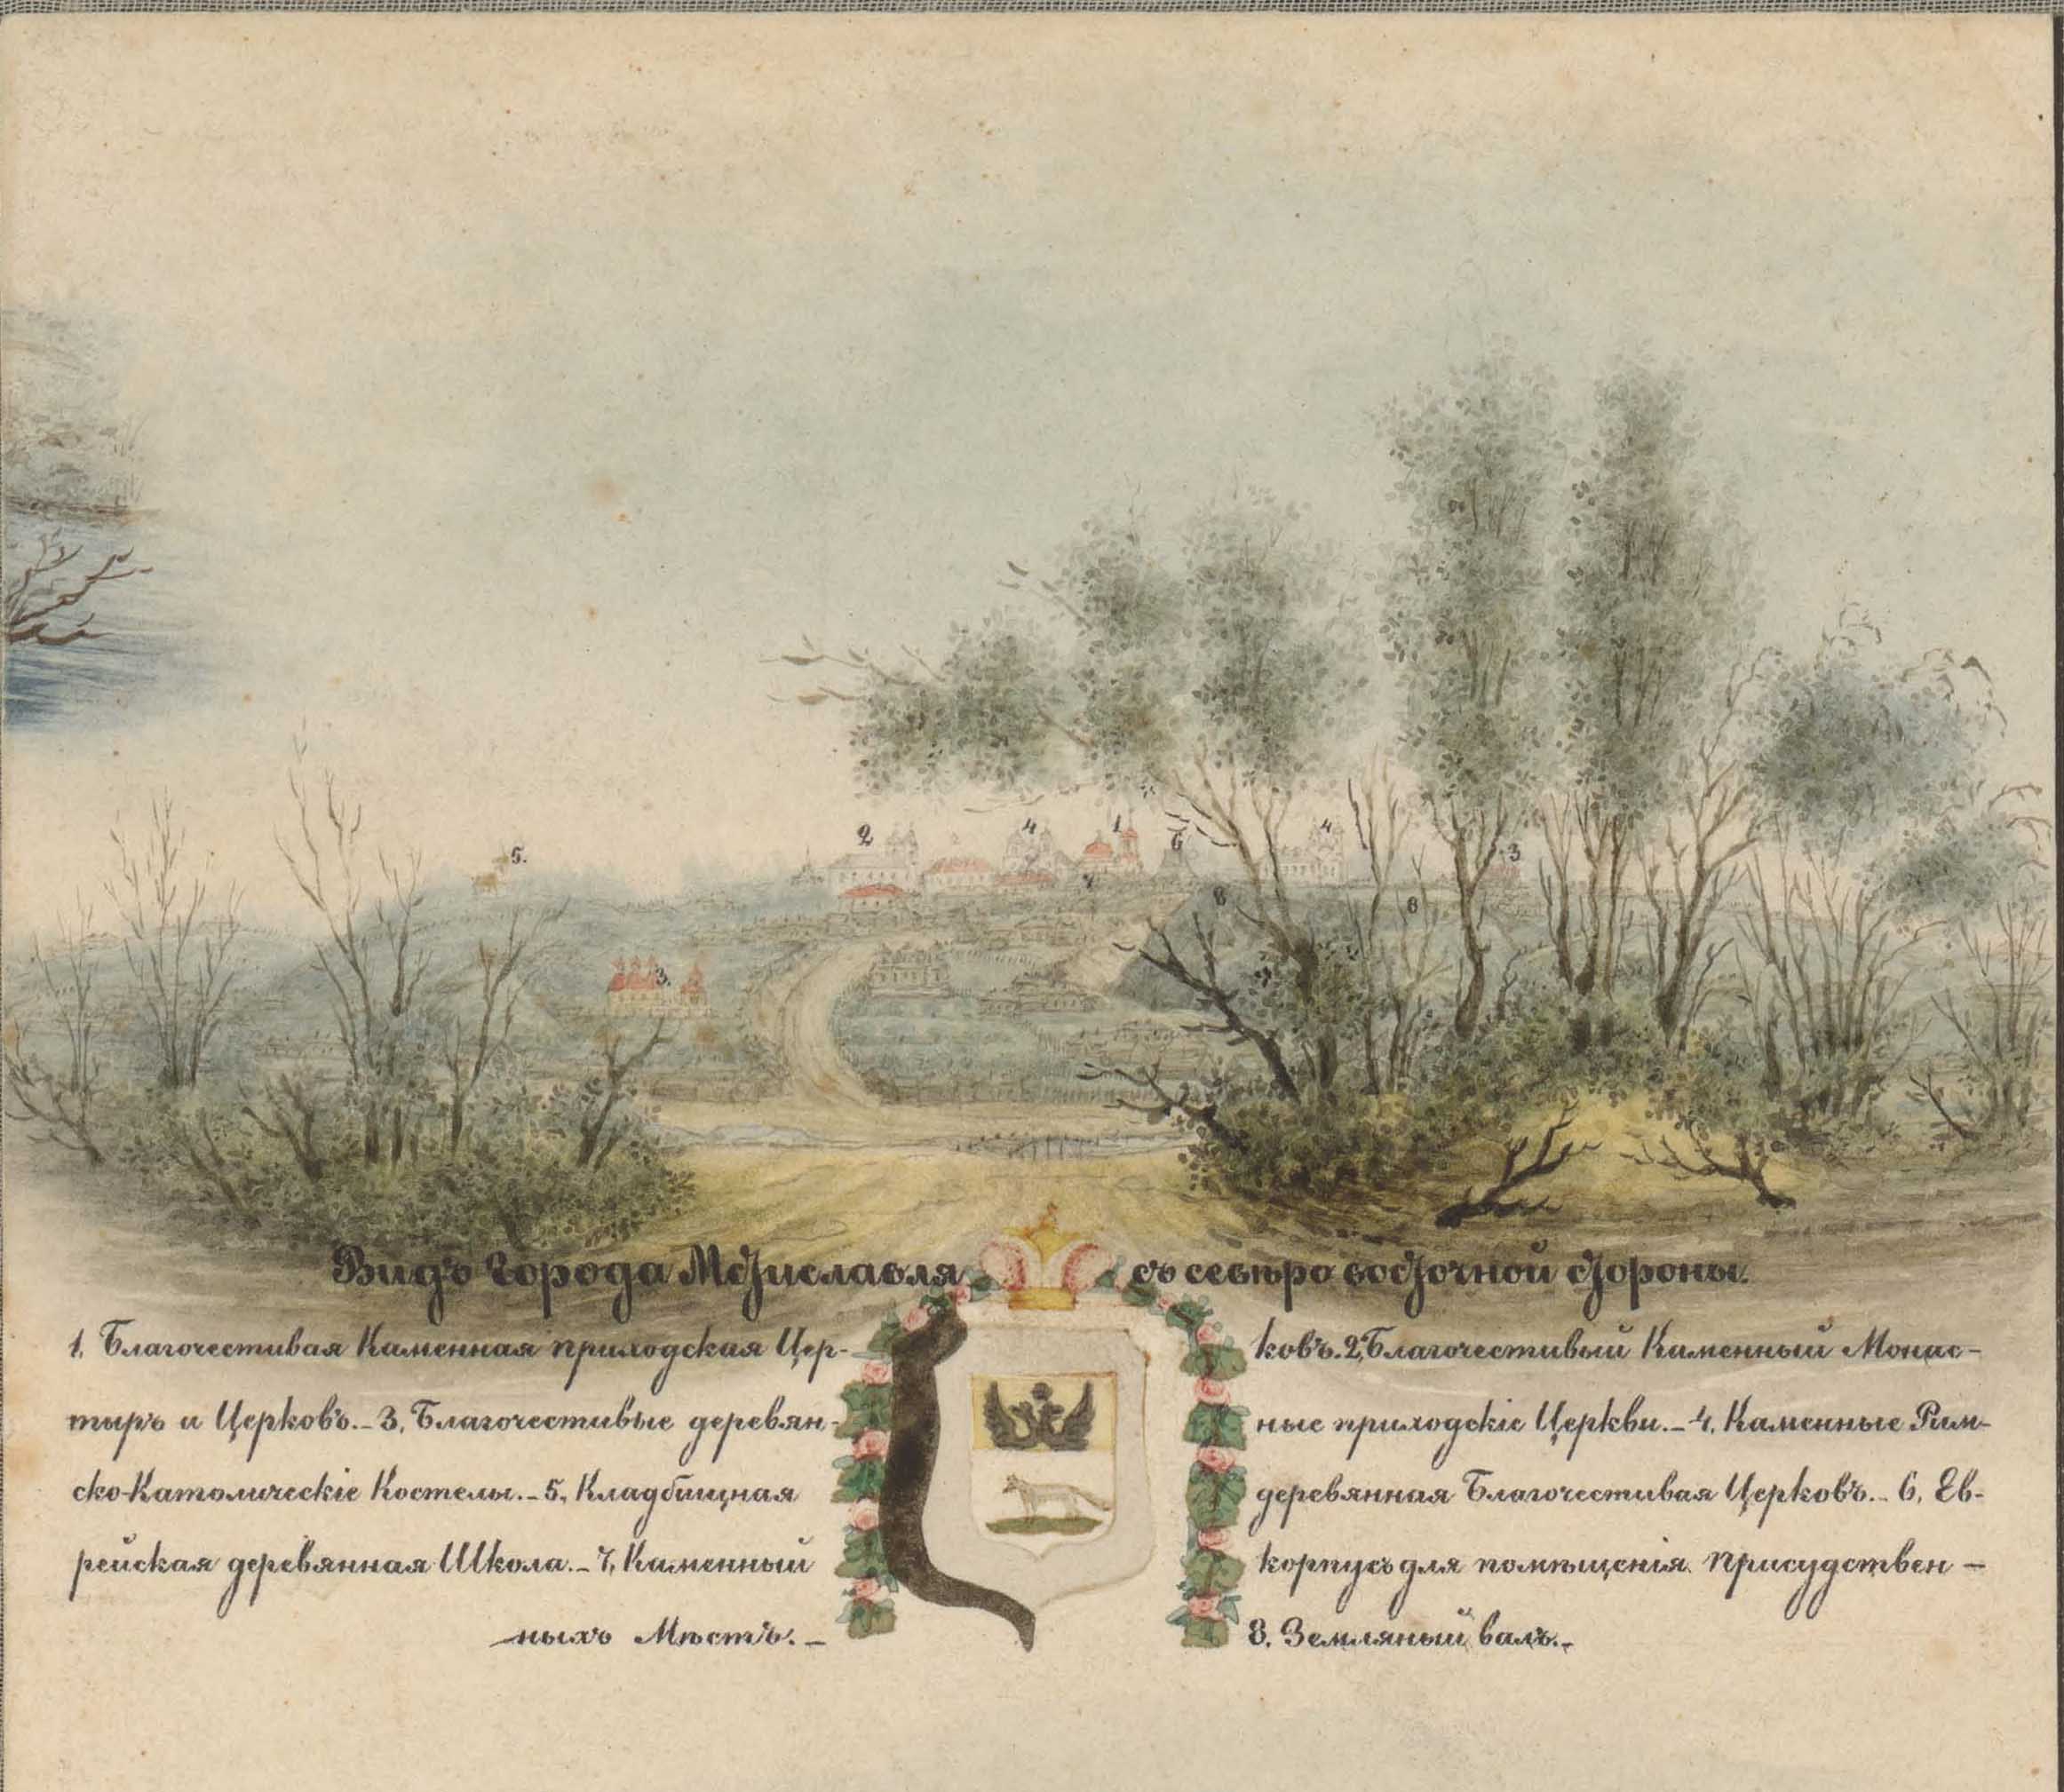 5.
2
4
1
6
4
3
7
8
8
3.
Видъ Города Мстиславля съ северо восточной стороны.
1, Благочестивая Каменная приходская Цер-ковъ. 2, Благочестивый Каменный Монас-
тырь и Церковъ. - 3, Благочестивые деревян-ные приходскіе Церкви. - 4, Каменные Рим-
ско-Католическіе Костелы. - 5, Кладбищная деревянная Благочестивая Церковъ. - 6, Ев-
рейская деревянная Школа. - 7, Каменный корпусъ для помѣщенія присудствен-
ныхъ Мѣстъ. - 8, Земляный валъ. -